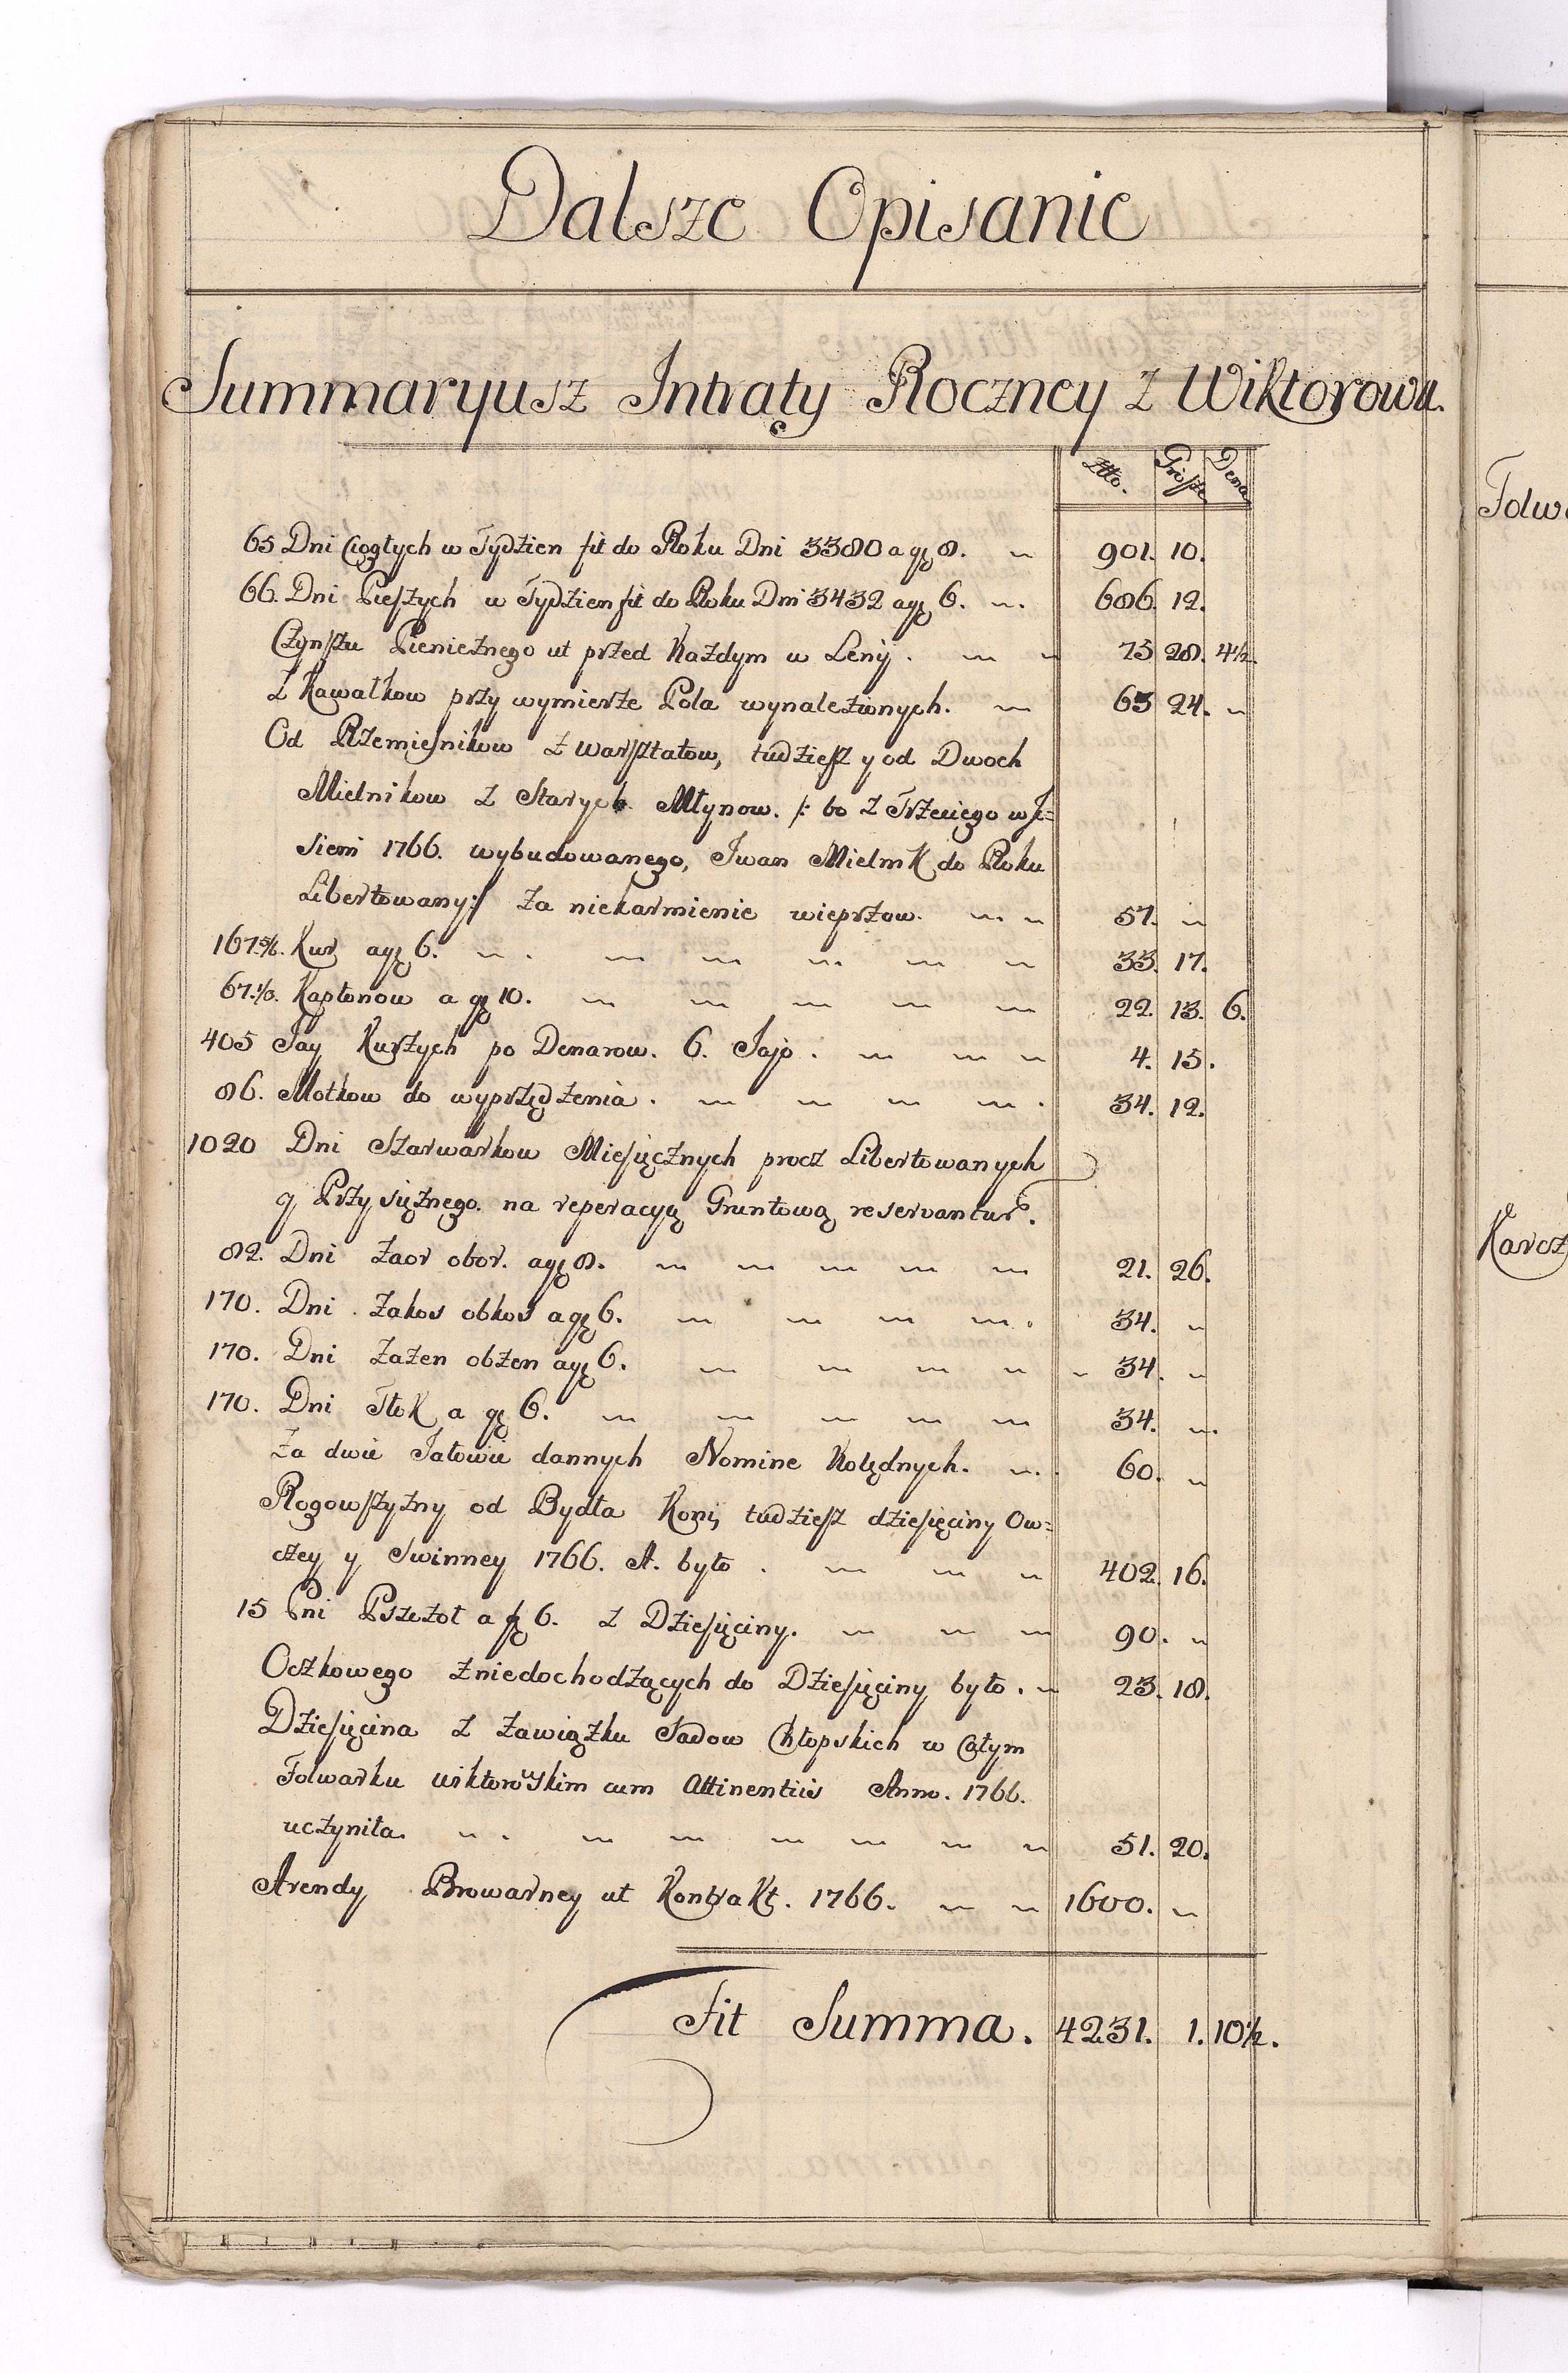 Dalsze Opisanie
Summaryusz Intraty Roczney z Wiktorowa.
Złło. Grosze Dena
65 Dni Ciągłych w Tydzien fit do Roku Dni 3380 a gṛ 8. 901. 10.
66. Dni Pieszych w Tydzien fit do Roku Dni 3432 a gṛ 6. 686. 12.
Czynszu Pienieznego ut przed Kazdym w Leniy. 75 28. 4½.
Z Kawałkow przy wymierze Pola wynalezionych. 63 24.
Od Rzemiesnikow z warsztatow, tudziesz y od Dwoch
Mielnikow z Starych Młynow. /: bo z Trzeciego w Je=
sieni 1766. wybudowanego, Iwan Mielnik do Roku
Libertowany :/ za niekarmienie wieprzow. 57.
167 5/6. Kur a gṛ 6. 33. 17.
67. 1/3. Kapłonow a gṛ 10. 22. 13. 6.
405 Jay Kurzych po Denarow. 6. Jajo. 4. 15.
86. Motkow do wyprzędzenia. 34. 12.
1020 Dni Szarwarkow Miesięcznych procz Libertowanych
y Przysiężnego. na reperacyą Gruntową reservantur.
82. Dni Zaor obor. a gṛ 8. 21. 26.
170. Dni Zakos obkos a gṛ 6. 34.
170. Dni Zażen obżen a gṛ 6. 34.
170. Dni Tłok a gṛ 6. 34.
Za dwie Jałowie dannych Nomine Kolędnych. 60.
Rogowszyzny od Bydła Koni, tudziesz dziesięciny Ow=
czey y Swinney 1766. A. było. 402. 16.
15 Pni Pszczoł a fṛ 6. z Dziesięciny. 90.
Oczkowego z niedochodzących do Dziesięciny było. 23. 18.
Dziesięcina z zawiązku Sadow Chłopskich w Całym
Folwarku wiktorowskim cum Attinentiis Anno. 1766.
uczyniła. 51. 20.
Arendy Browarney ut Kontrakt. 1766. 1600.
Fit Summa. 4231. 1. 10½.
Folw
Karcz